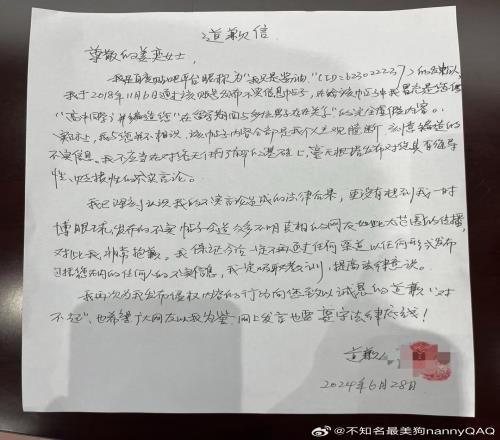 道歉信
尊敬的姜雯女士,
我是百度贴吧平台昵称为“我又是酱油”(ID=623022237)的发帖人,
我于2018年11月6日通过该账号发布不实信息帖子,在该帖中我冒充是您
“高中同学”并编造您“在学习期间与多位男子存在关系”的完全虚假内容。
实际上,我与您并不相识,该帖子内容全部是我个人主观臆断、刻意编造的
不实信息。我不应当在对您无任何了解的基础上,毫无根据发布对您具有侮辱
性、贬损性的不实言论。
我已深刻认识我的不实言论造成的法律后果,更没有想到我一时
博眼球,发布的不实帖子会造众多不明真相的网友如此大范围的传播,
对此我非常抱歉。我保证今后一定不再通过任何渠道以任何形式发布
包括您在内的任何人的不实信息,我一定吸取教训,提高法律意识。
我再次为我发布侵权内容的行为向您致以诚恳的道歉“对
不起”,也希望广大网友以我为鉴,网上发言也要遵守法律底线!
道歉人
2024年6月28日
@不知名最美狗nannyQAQ